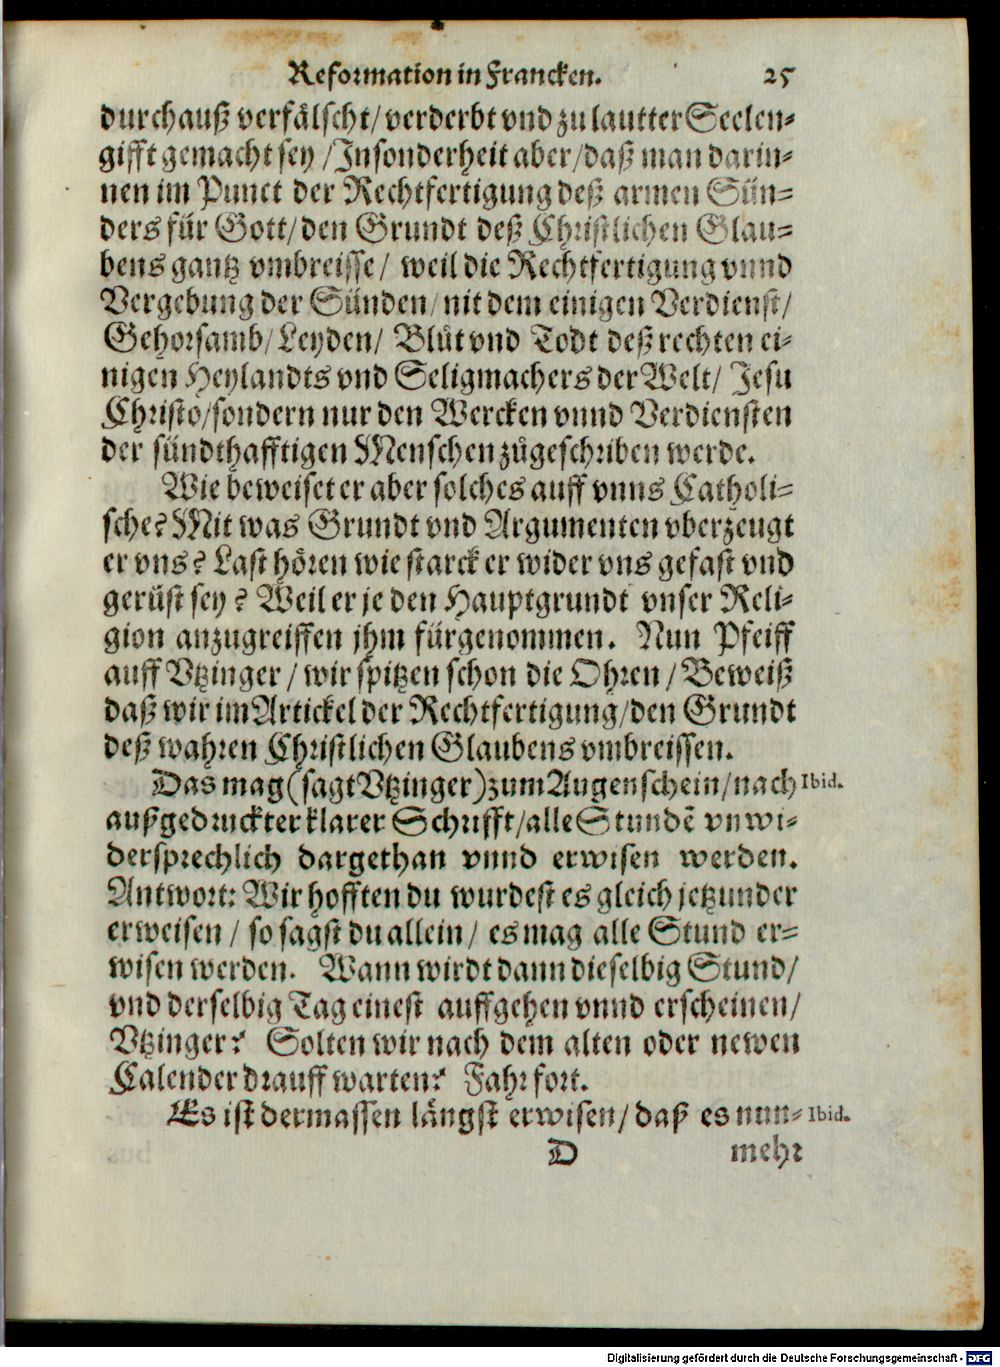 Reformation in Francken. 25
durchauß verfälscht/verderbt vnd zu lautter Seelen-
gifft gemacht sey /Insonderheit aber/daß man darin-
nen im Punct der Rechtfertigung deß armen Sün-
ders für Gott/den Grundt deß Christlichen Glau-
bens gantz vmbreisse/ weil die Rechtfertigung vnnd
Vergebung der Sünden/nit dem einigen Verdienst/
Gehorsamb/Leyden/ Blůt vnd Todt deß rechten ei-
nigen Heylandts vnd Seligmachers der Welt/ Jesu
Christo/sondern nur den Wercken vnnd Verdiensten
der sündthafftigen Menschen zůgeschriben werde.
Wie beweiset er aber solches auff vnns Catholi-
sche? Mit was Grundt vnd Argumenten vberzeugt
er vns? Last hören wie starck er wider vns gefast vnd
gerüst sey? Weil er je den Hauptgrundt vnser Reli-
gion anzugreiffen jhm fürgenommen. Nun Pfeiff
auff Vtzinger / wir spitzen schon die Ohren / Beweiß
daß wir im Artickel der Rechtfertigung/den Grundt
deß wahren Christlichen Glaubens vmbreissen.
Das mag (sagt Vtzinger) zum Augenschein/nach Ibid.
außgedruckter klarer Schrifft/alle Stundẽ vnwi-
dersprechlich dargethan vnnd erwisen werden.
Antwort: Wir hofften du wurdest es gleich jetzunder
erweisen / so sagst du allein / es mag alle Stund er-
wisen werden. Wann wirdt dann dieselbig Stund/
vnd derselbig Tag einest auffgehen vnnd erscheinen/
Vtzinger? Solten wir nach dem alten oder newen
Calender drauff warten? Fahr fort.
Es ist dermassen längst erwisen/ daß es nun- Ibid.
D mehr
Digitalisierung gefördert durch die Deutsche Forschungsgemeinschaft - DFG